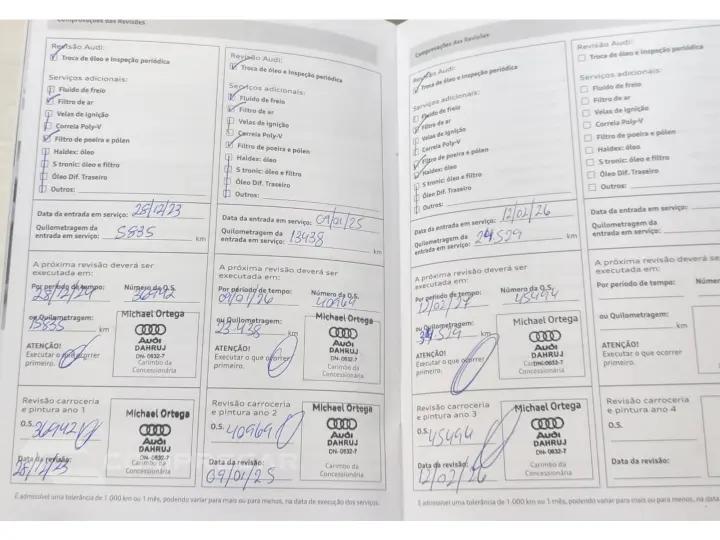 Comprovações das Revisões
Revisão Audi:
Troca de óleo e inspeção periódica
Serviços adicionais:
Fluido de freio
Filtro de ar
Velas de ignição
Correia Poly-V
Filtro de poeira e pólen
Haldex: óleo
S tronic: óleo e filtro
Óleo Dif. Traseiro
Outros:
Data da entrada em serviço: 28/12/23
Quilometragem da
entrada em serviço: 5835 km
A próxima revisão deverá ser
executada em:
Por período de tempo: Número da O.S.
28/12/24 36942
ou Quilometragem:
15835 km
ATENÇÃO!
Executar o que ocorrer
primeiro.
Michael Ortega
Audi
DAHRUJ
DN- 0632-7
Carimbo da
Concessionária
Revisão carroceria
e pintura ano 1
O.S. 36942
Data da revisão:
28/12/23
Michael Ortega
Audi
DAHRUJ
DN- 0632-7
Carimbo da
Concessionária
Revisão Audi:
Troca de óleo e inspeção periódica
Serviços adicionais:
Fluido de freio
Filtro de ar
Velas de ignição
Correia Poly-V
Filtro de poeira e pólen
Haldex: óleo
S tronic: óleo e filtro
Óleo Dif. Traseiro
Outros:
Data da entrada em serviço: 09/01/25
Quilometragem da
entrada em serviço: 13438 km
A próxima revisão deverá ser
executada em:
Por período de tempo: Número da O.S.
09/01/26 40969
ou Quilometragem:
23.438 km
ATENÇÃO!
Executar o que ocorrer
primeiro.
Michael Ortega
Audi
DAHRUJ
DN- 0632-7
Carimbo da
Concessionária
Revisão carroceria
e pintura ano 2
O.S. 40969
Data da revisão:
09/01/25
Michael Ortega
Audi
DAHRUJ
DN- 0632-7
Carimbo da
Concessionária
É admissível uma tolerância de 1.000 km ou 1 mês, podendo variar para mais ou para menos, na data de execução dos serviços.
Comprovações das Revisões
Revisão Audi:
Troca de óleo e inspeção periódica
Serviços adicionais:
Fluido de freio
Filtro de ar
Velas de ignição
Correia Poly-V
Filtro de poeira e pólen
Haldex: óleo
S tronic: óleo e filtro
Óleo Dif. Traseiro
Outros:
Data da entrada em serviço: 12/02/26
Quilometragem da
entrada em serviço: 24.529 km
A próxima revisão deverá ser
executada em:
Por período de tempo: Número da O.S.
12/02/27 45494
ou Quilometragem:
34.529 km
ATENÇÃO!
Executar o que ocorrer
primeiro.
Michael Ortega
Audi
DAHRUJ
DN- 0632-7
Carimbo da
Concessionária
Revisão carroceria
e pintura ano 3
O.S. 45494
Data da revisão:
12/02/26
Michael Ortega
Audi
DAHRUJ
DN- 0632-7
Carimbo da
Concessionária
Revisão Audi:
Troca de óleo e inspeção
Serviços adicionais:
Fluido de freio
Filtro de ar
Velas de ignição
Correia Poly-V
Filtro de poeira e pólen
Haldex: óleo
S tronic: óleo e filtro
Óleo Dif. Traseiro
Outros:
Data da entrada em serviço:
Quilometragem da
entrada em serviço:
A próxima revisão deverá ser
executada em:
Por período de tempo:
ou Quilometragem:
km
ATENÇÃO!
Executar o que ocorrer
primeiro.
Revisão carroceria
e pintura ano 4
O.S.
Data da revisão:
É admissível uma tolerância de 1.000 km ou 1 mês, podendo variar para mais ou para menos, na data